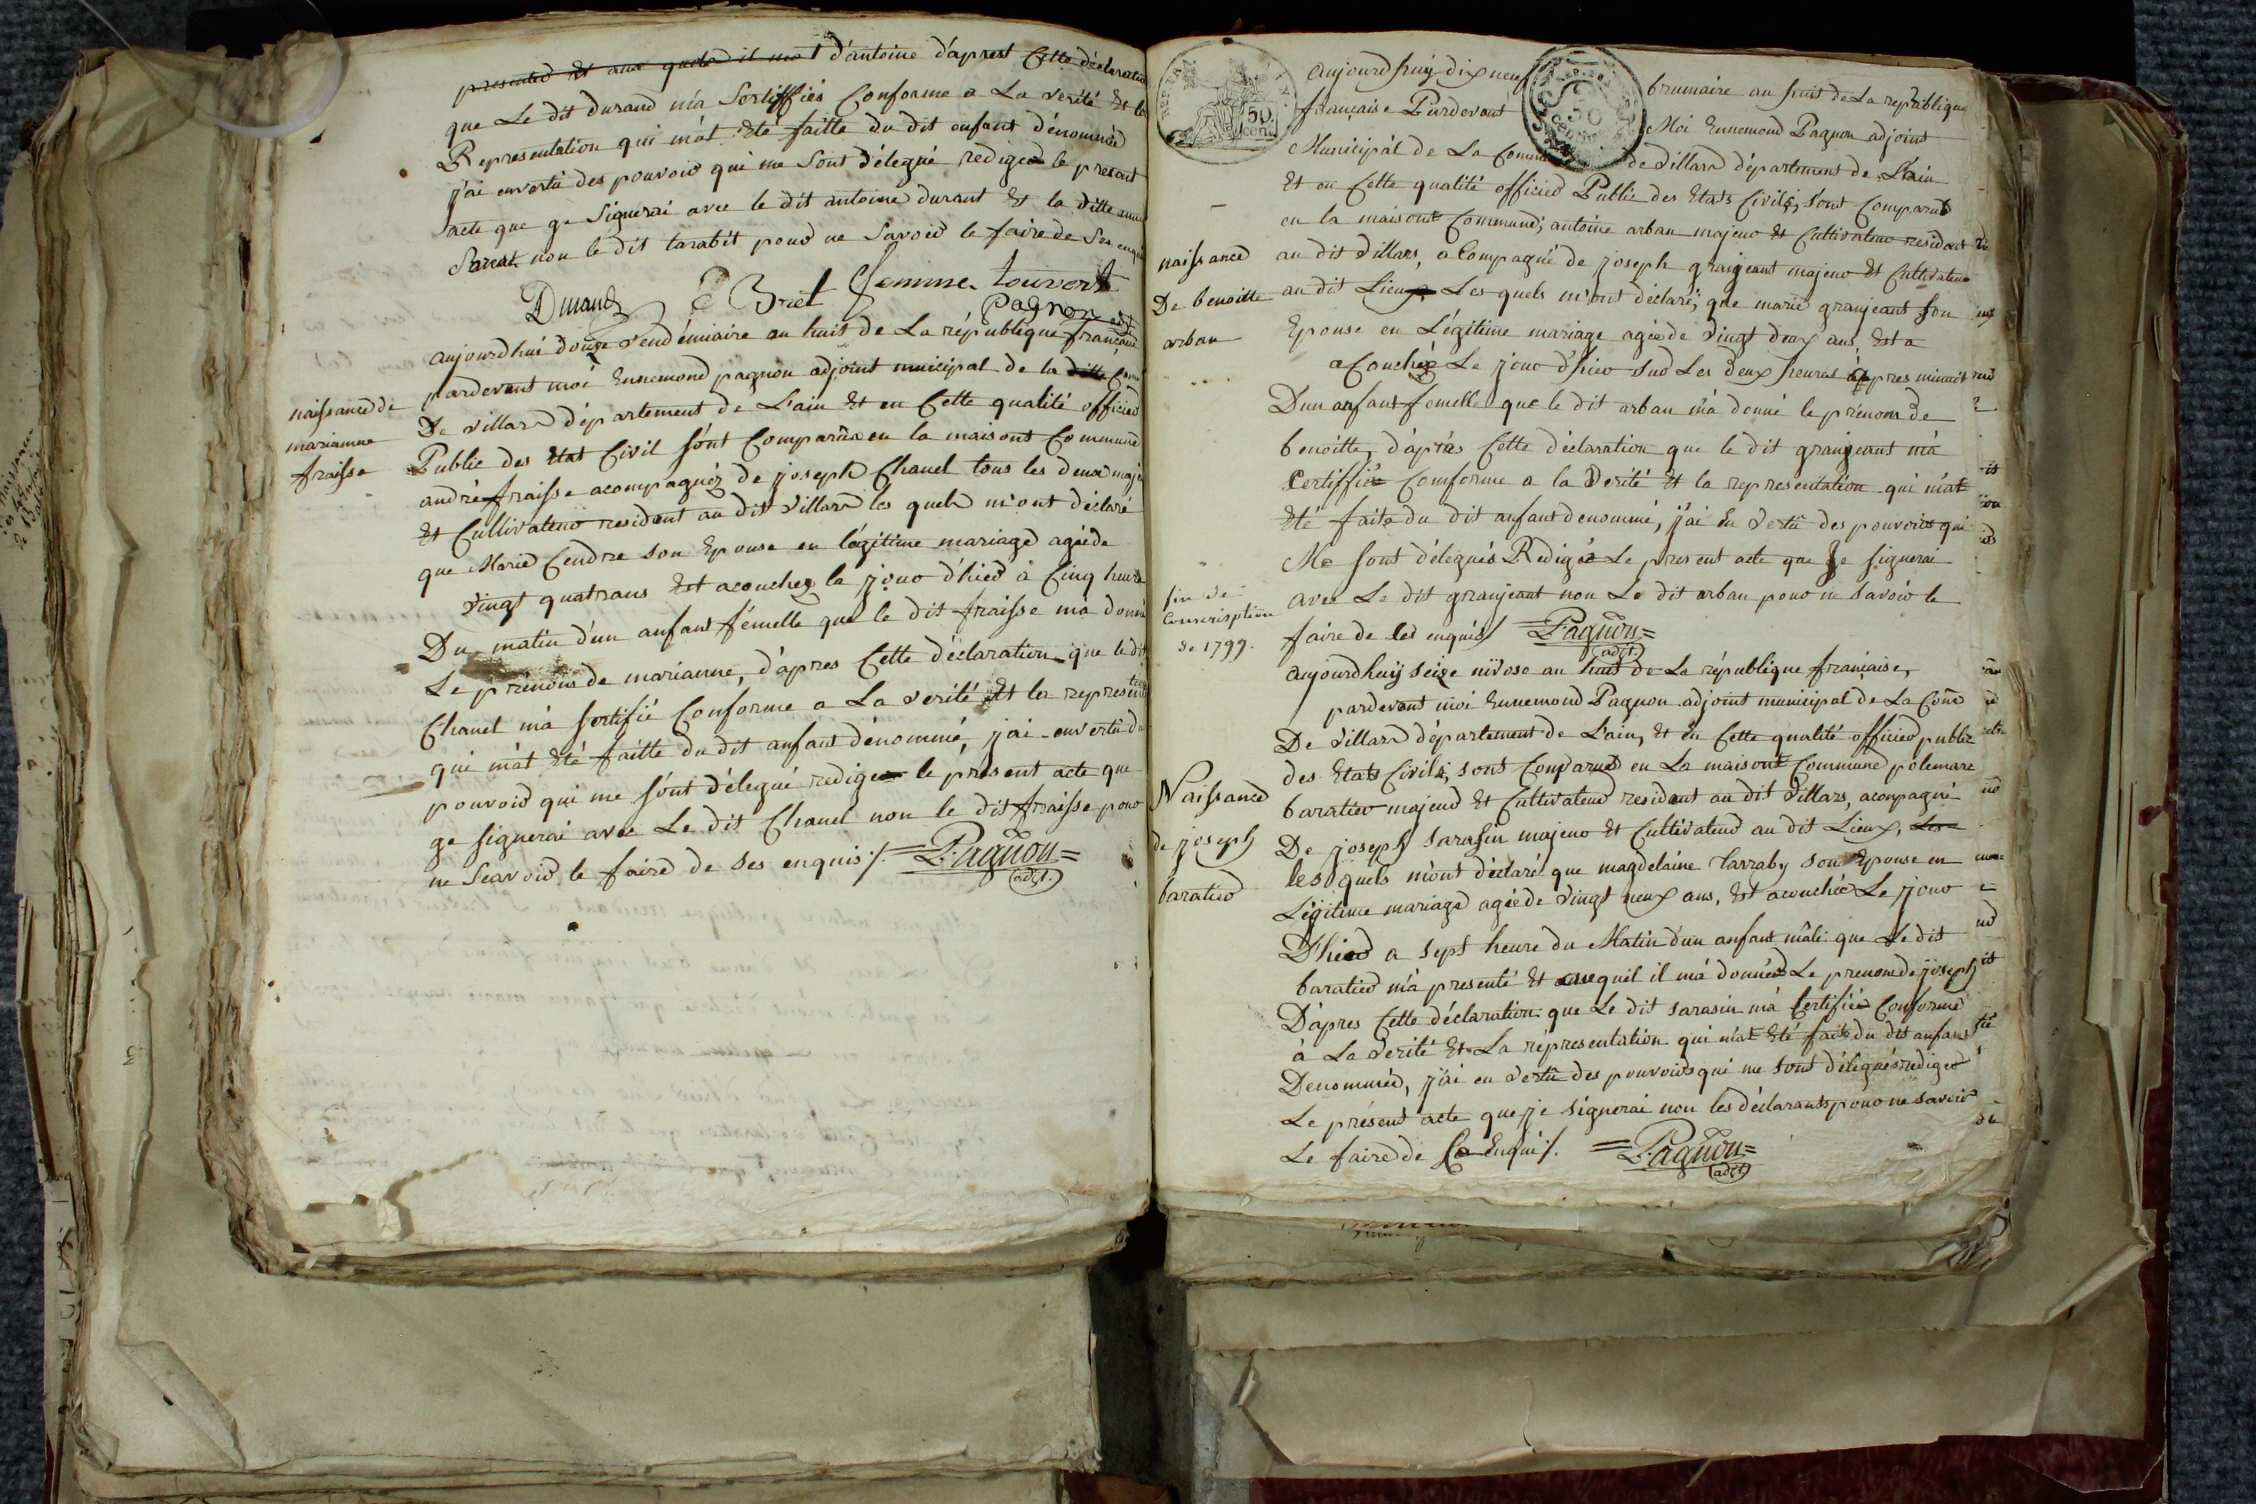 presenté et au quels il mat d'antoine d'aprest Cette déclaration
que Le dit durand m'a Sertiffiés Conforme a La verité Et la
Representation qui m'at Eté faitte du dit enfant dénommé
j'ai envertû des pouvoir qui me Sont délegué rediger le presant
acte que ge Signerai avec le dit antoine durant Et la ditte
non le dit tarabit pour ne Savoir le faire de
Durand Briel femme touvort
Pagnon adjt
aujourdhui douze vendémiaire an huit de La république française
pardevant moi Ennemond pagnon adjoint municipal de la ditte Com
De villard département de L'ain Et en Cette qualité officier
Public des Etat Civil sont Comparûs en la maisont Commune
andré fraisse acompagnéz de joseph Chanel tous les deux maje
Et Cultivateur resident au dit villard les quels m'ont déclaré
que Marie Cendre son Epouse en légitime mariage agéede
vingt quatrans Est acouchez le jour d'hier à Cinq heure
Du matin d'un anfant fémelle que le dit fraisse ma donné
Le prénom de marianne, d'apres Cette déclaration que le dit
Chanel m'a sertifié Conforme a La verité Et la represent
qui m'at Eté faitte du dit anfant dénommé, jai envertû de
pouvoir qui me sont délegué rediger le présent acte que
ge signerai avec Le dit Chanel non le dit fraisse pour
ne Scavoir le faire de ses enquis ./. =Pagnon=
adjt.
naissance de
marianne
fraisse
REP. FRA.
50
cent.
aujourdhuy dix neuf brumaire an huit de La republique
française Pardevant Moi Ennemond Pagnon adjoint
Municipal de La Commune de villard département de L'ain
Et en Cette qualité officier Public des Etats Civils, sont Comparus
en la maisont Commune, antoine arban majeur Et Cultivateur resident
au dit villars, acompagné de joseph granjeant majeur Et Cultivateur
au dit Lieux Les quels m'ont déclaré, que marie granjeant son
Epouse en Légitime mariage agéede vingt deux ans Est a
aCouchéé Le jour d'hier sur Les deux heures après minuit
Dun anfant femelle que le dit arban m'a donné le prénom de
benoitte, d'après Cette déclaration que le dit granjeant m'a
Certiffiée Conforme a la Verité Et la representation qui m'at
Eté faite du dit anfant denommé, j'ai En vertû des pouvoirs qui
Me sont délegués Redigée Le present acte que Je signerai
avec Le dit granjeant non Le dit arban pour ne savoir le
faire de les enquis/ =Pagnon=
adjt.
naissance
De benoitte
arban
fin de
Conscription
de 1799.
aujourdhuy seize nivose an huit de La république française,
pardevant moi Ennemond Pagnon adjoint municipal de La Com̄e
De villard département de L'ain, Et En Cette qualité officier public
des Etats Civils, sont Comparus en La maisont Commune polemare
baratier majeur Et Cultivateur resident au dit villars, acompagné
De joseph sarasin majeur Et Cultivateur au dit Lieux, Les
les quels m'ont déclaré que magdelaine Tarraby son Epouse en
Légitime mariage agéede vingt neux ans, Est acouchée Le jour
D'hier a sept heure du Matin d'un anfant mâle que Le dit
baratier m'a presenté Et auequel il m'a donnéé Le prenom de joseph
D'apres Cette déclaration que Le dit sarasin m'a Certifiée Conforme
à La verité Et La répresentation qui m'at Eté faite du dit anfant
Denommée, j'ai en vertû des pouvoirs qui me sont délegués rediger
Le présent acte que je signerai non les déclarants pour ne savoir
Le faire de Ce Enqui ./. =Pagnon=
adjt
Naissance
de joseph
baratier